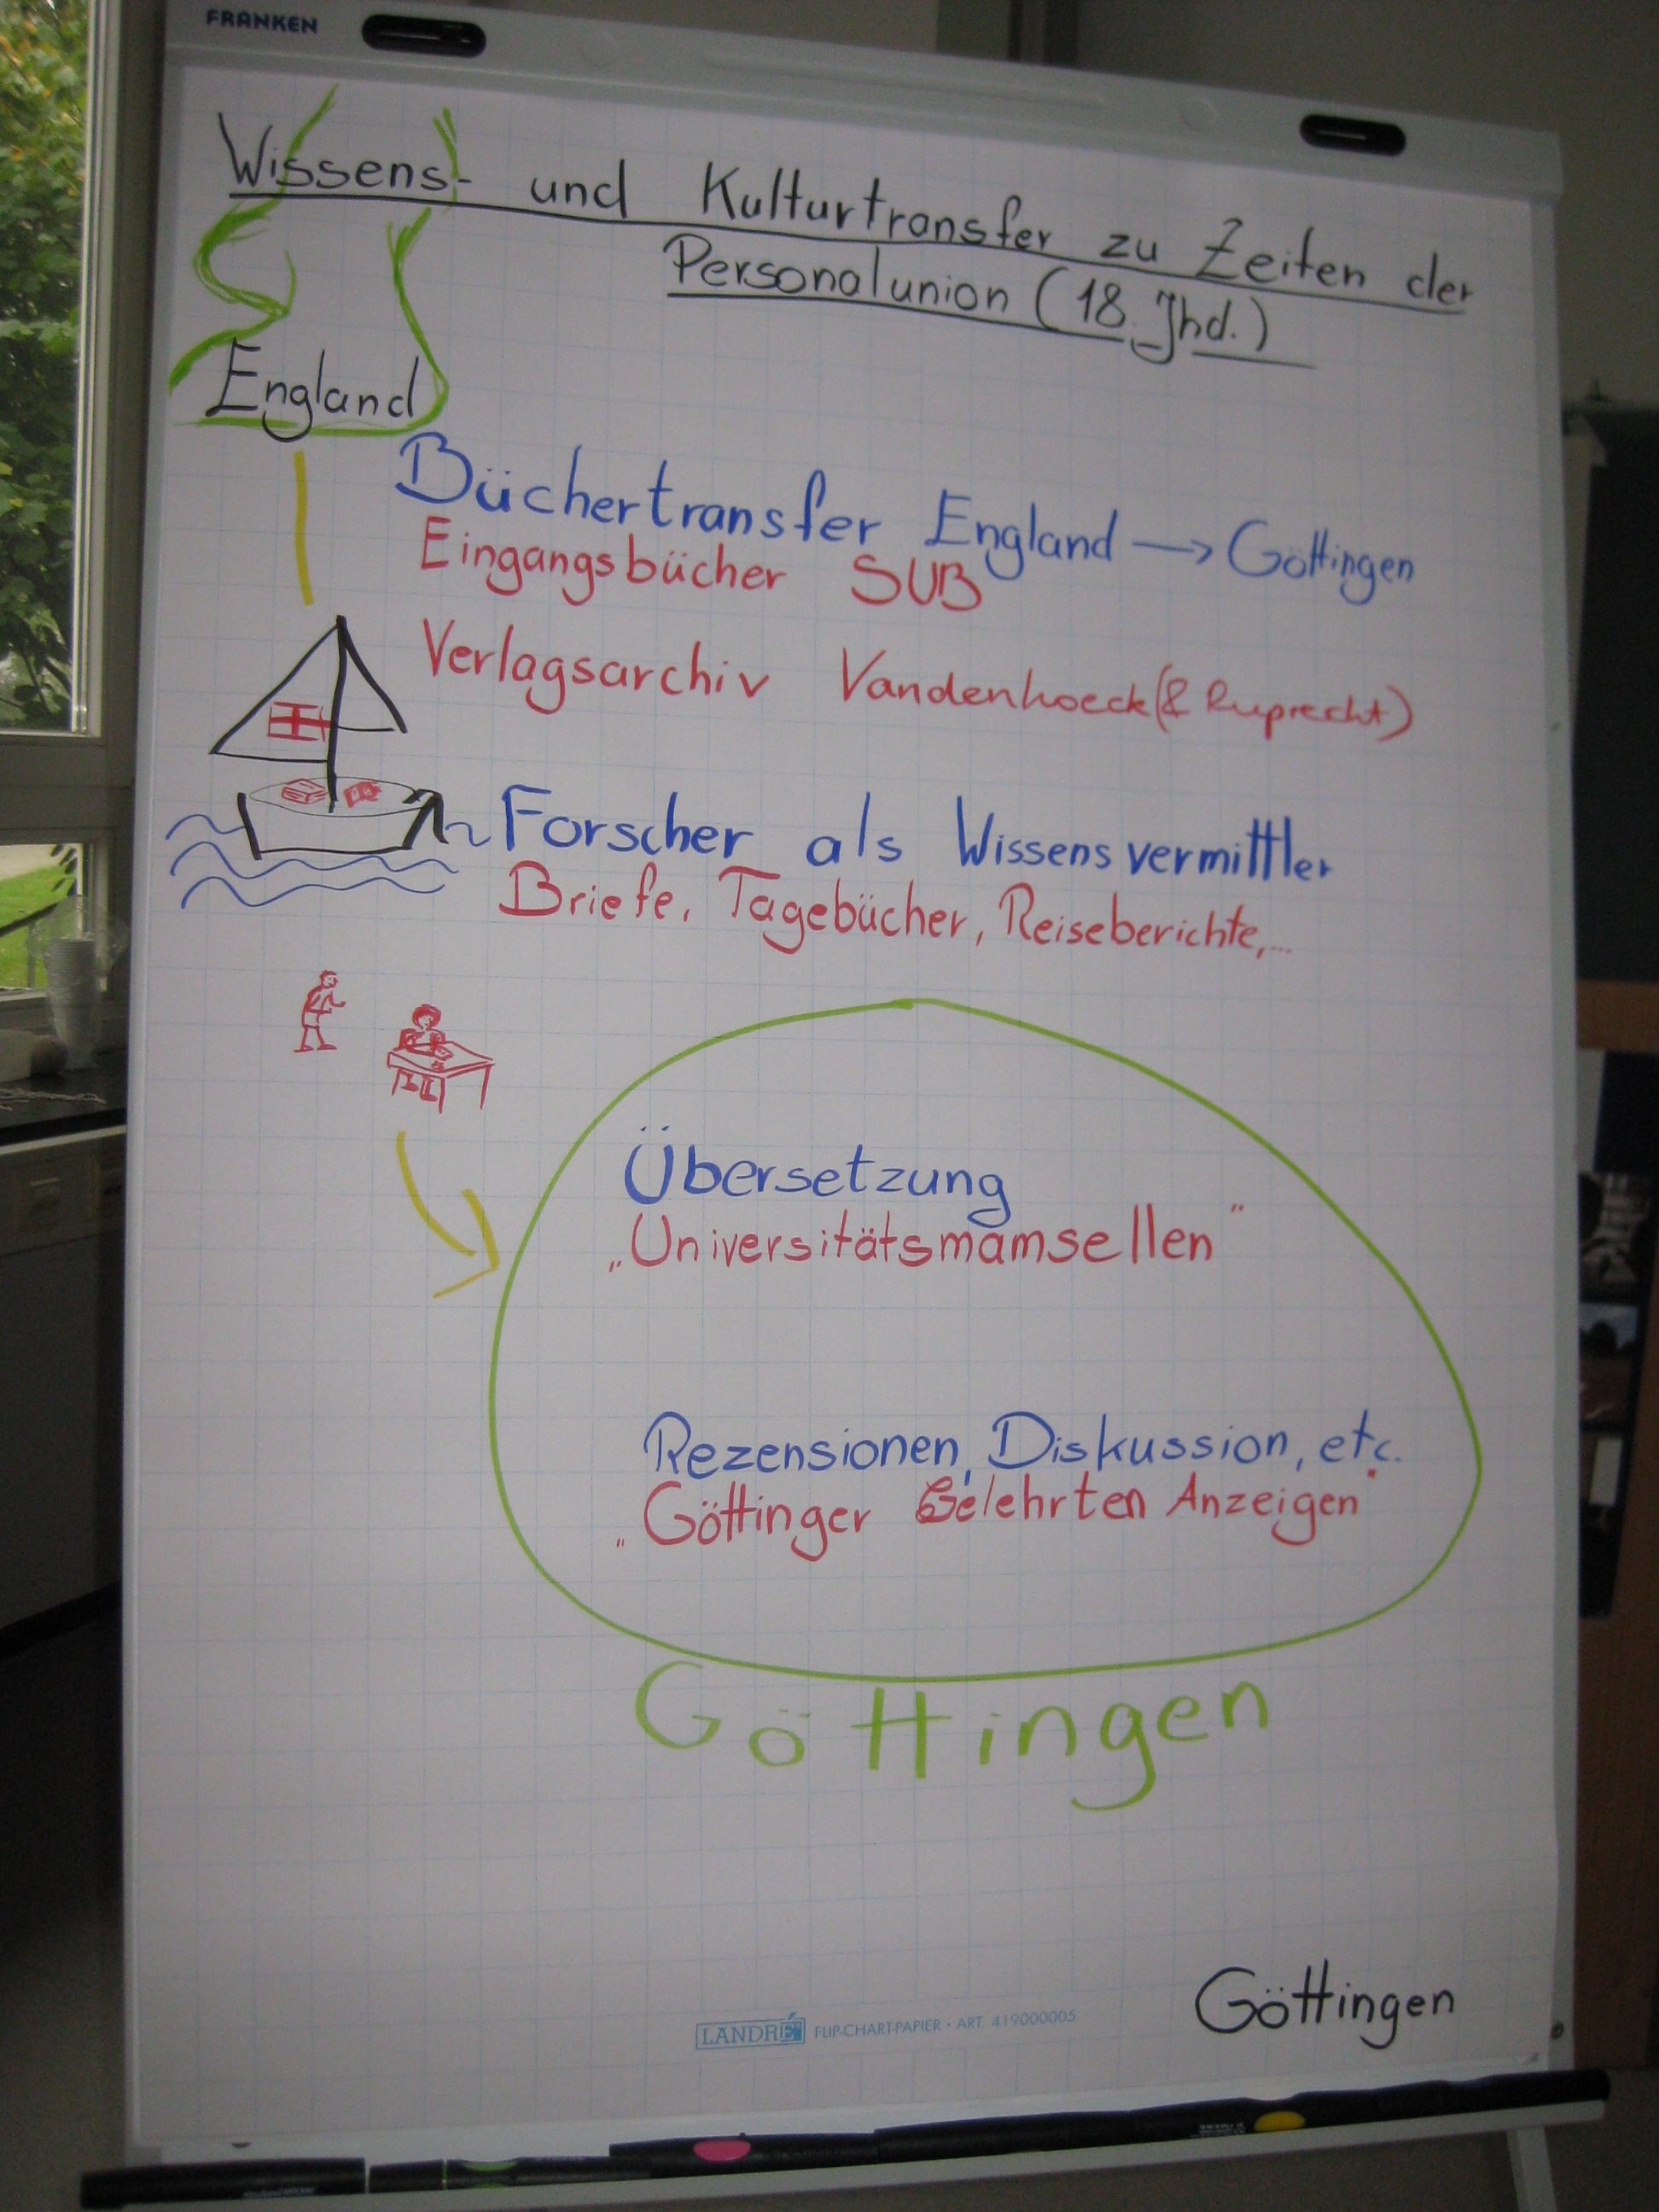 FRANKEN
Wissens- und Kulturtransfer zu Zeiten der
Personalunion (18. Jhd.)
England
Büchertransfer England → Göttingen
Eingangsbücher SUB
Verlagsarchiv Vandenhoeck (& Ruprecht)
Forscher als Wissensvermittler
Briefe, Tagebücher, Reiseberichte,...
Übersetzung
„Universitätsmamsellen"
Rezensionen, Diskussion, etc.
„Göttinger Gelehrten Anzeigen"
Göttingen
Göttingen
LANDRÉ FLIP-CHART-PAPIER • ART. 419000005